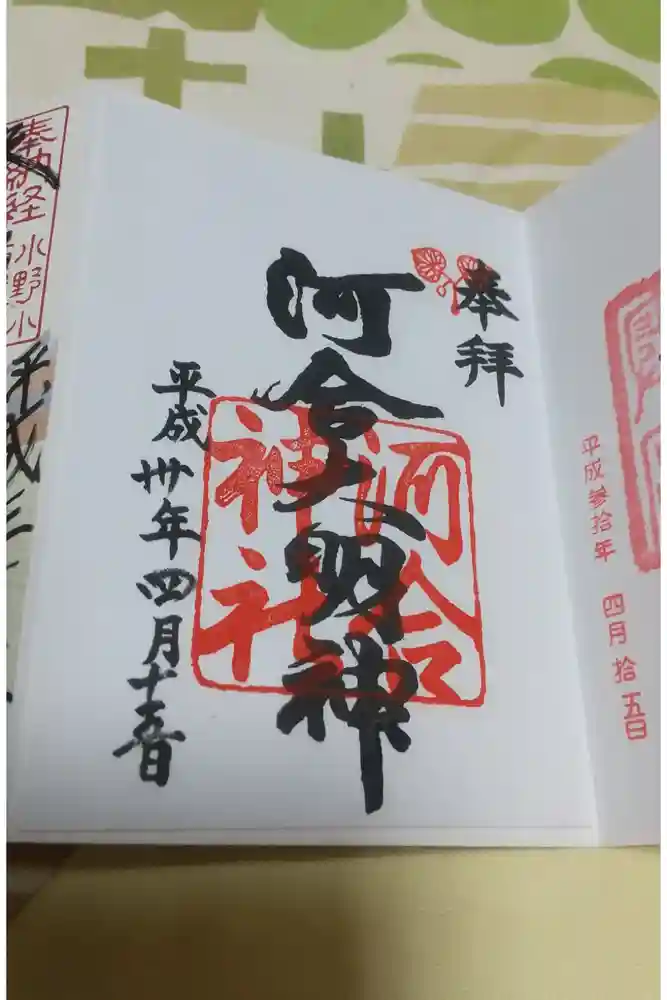 奉拝
河合大明神
河合
神社
平成卅年四月十五日
平成参拾年 四月拾五日
奉納経
水野小
平成三